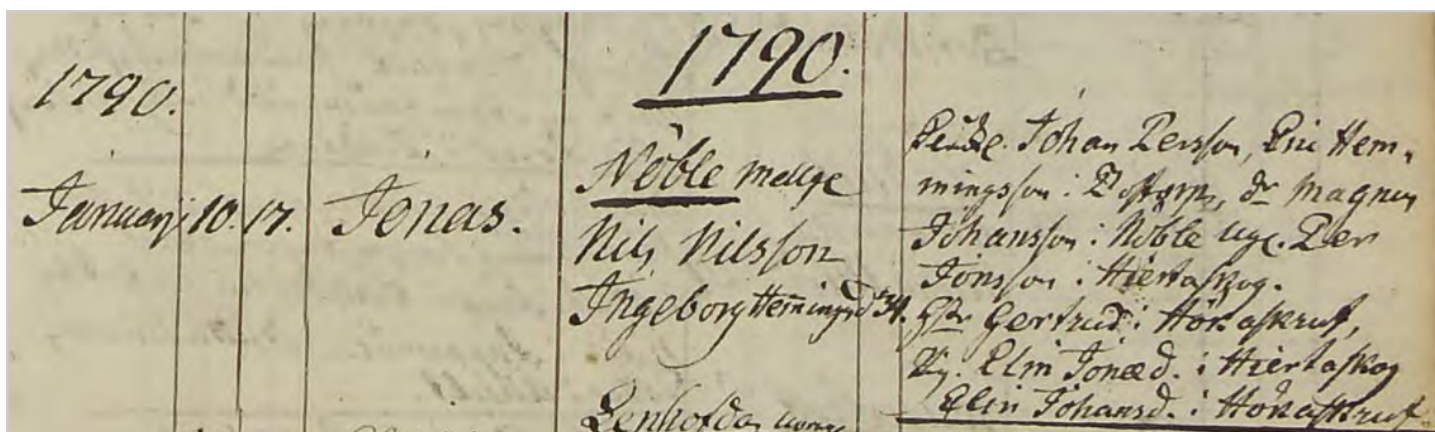 1790.
1790.
Januarj 10. 17. Jonas.
Nöble mellge
Nils Nilsson
Ingeborg Hemingsd 34.
Johan Persson, Eric Hem-
mingsson i dr Magnus
Johansson i Nöble Per
Jonsson i Hiertaskog.
Gertrud i Hönaskruf,
Pig. Elin Jonæd. i Hiertaskog
Elin Johansd. i Hönaskruf
Lenhofda